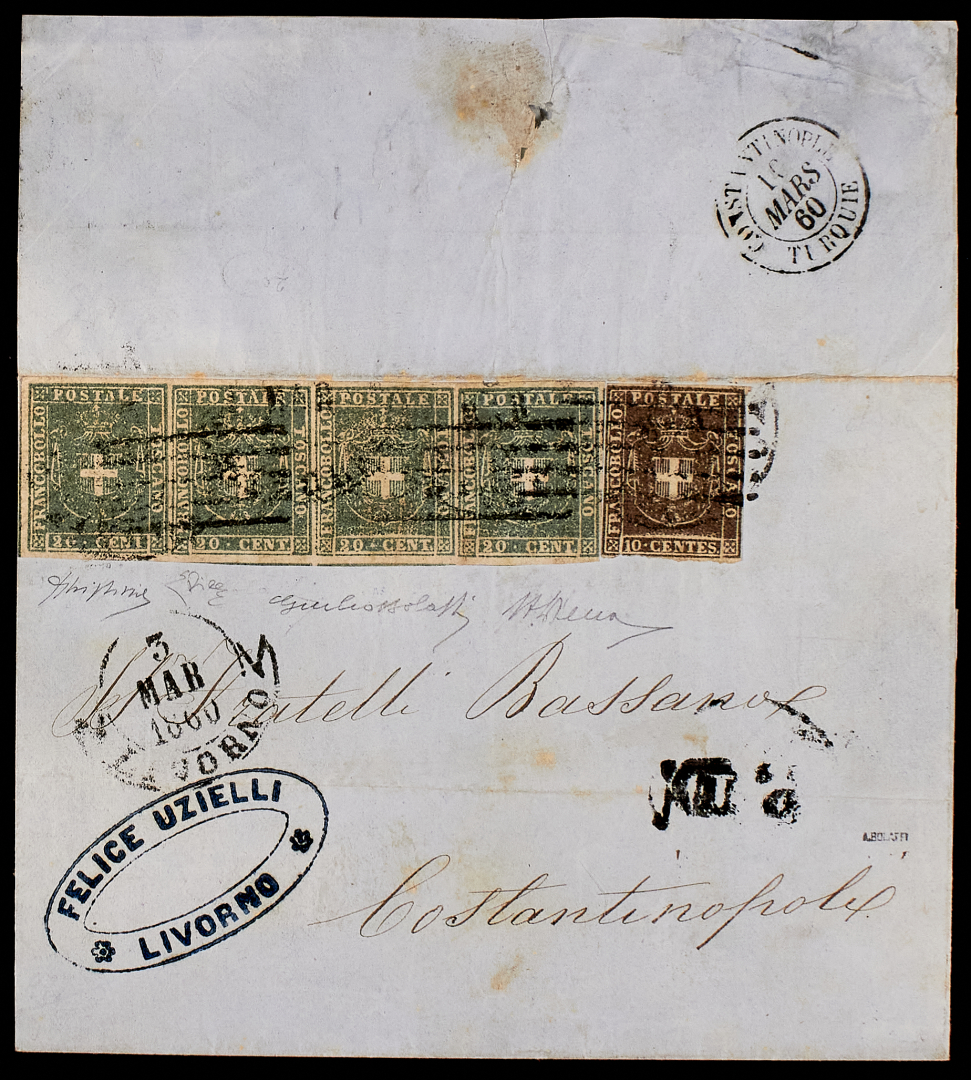 CONSTANTINOPLE
MARS
60
TURQUIE
POSTALE POSTALE POSTALE POSTALE POSTALE
FRANCOBOLLO FRANCOBOLLO FRANCOBOLLO FRANCOBOLLO FRANCOBOLLO
TOSCANO TOSCANO TOSCANO TOSCANO TOSCANO
20 CENT 20 CENT 20 CENT 20 CENT 10 CENTES
3
MAR
1860
LIVORNO
Fratelli Bassano
FELICE UZIELLI
LIVORNO
A.BOLAFFI
Costantinopoli